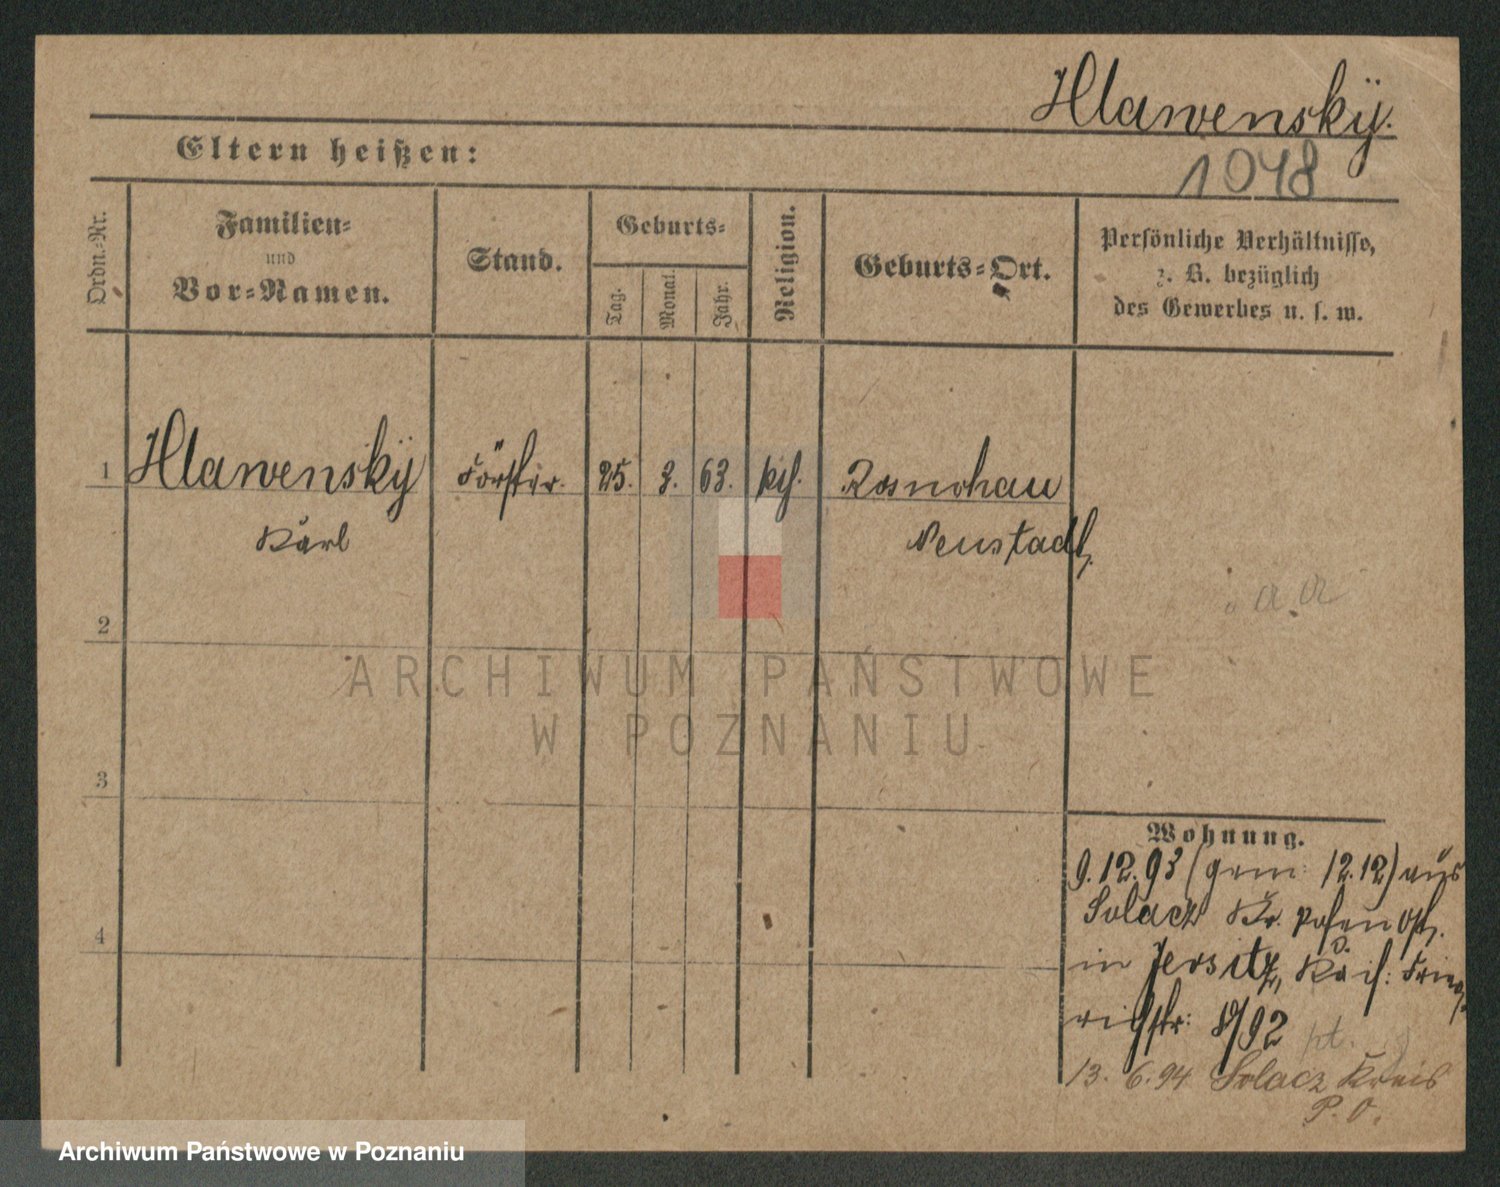 Hlawenskÿ.
Eltern heißen:
1048
Ordn.-Nr.
Familien-
und
Vor-Namen.
Stand.
Geburts-
Tag.
Monat.
Jahr.
Religion.
Geburts-Ort.
Persönliche Verhältnisse,
z. B. bezüglich
des Gewerbes u. s. w.
1 Hlawenskÿ Förster. 25. 3. 63. kth. Rosnohau
Karl Neustadt
2
3
4
Wohnung.
9.12.93 (gem 12.12) aus
Solacz Kr. Posen Ost.
in Jersitz, Kais: Fried
richstr:
13. 6. 94 Solacz Kreis
P. O.
ARCHIWUM PAŃSTWOWE
W POZNANIU
Archiwum Państwowe w Poznaniu